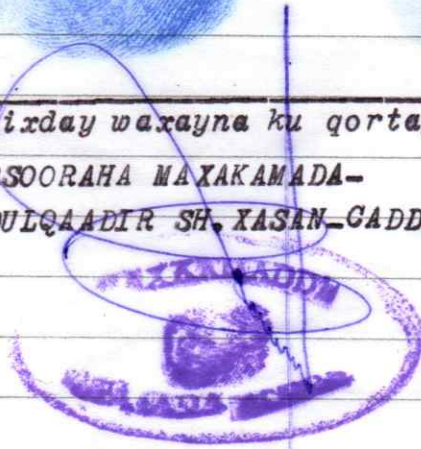 ixday waxayna ku qorta
SOORAHA MAXAKAMADA-
ULQAADIR SH. XASAN-GADD